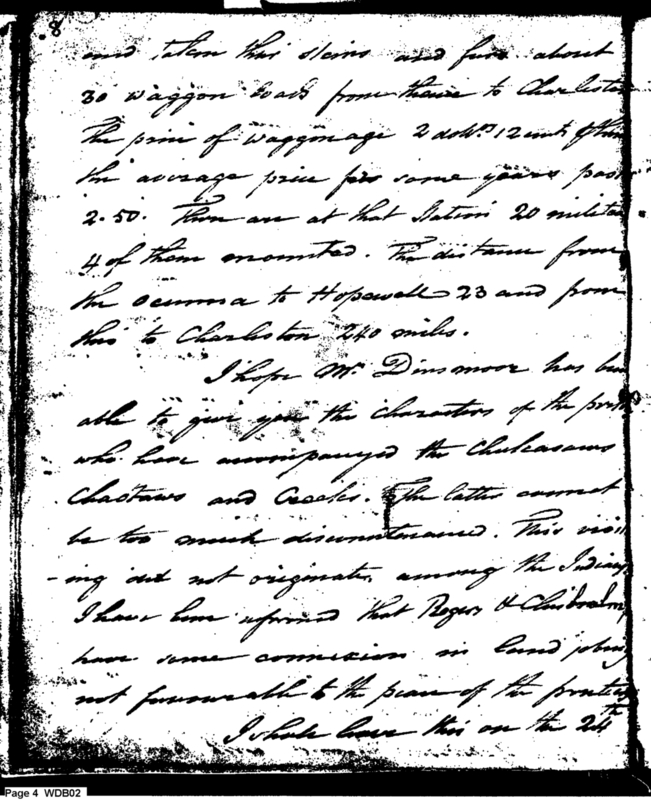 8
and taken this skins and furs about
30 waggon loads from thence to Charleston
the price of waggonage 2 doll.rs 12 cents
the average price for some years past
2.50. There are at that Station 20 militia
4 of them mounted. The distance from
the ocunna to Hopewell 23 and from
this to Charleston 240 miles.
I hope Mr. Dinsmoor has been
able to give you the characters of the persons
who have accompanyed the Chickasaws
Choctaws and Creeks. The latter cannot
be too much discountenanced. This visit
-ing did not originate among the Indians
I have been informed that Rogers & Chisholm
have some connexion in land jobing
not favourable to the peace of the frontier
I shall leave this on the 24th
Page 4 WDB02